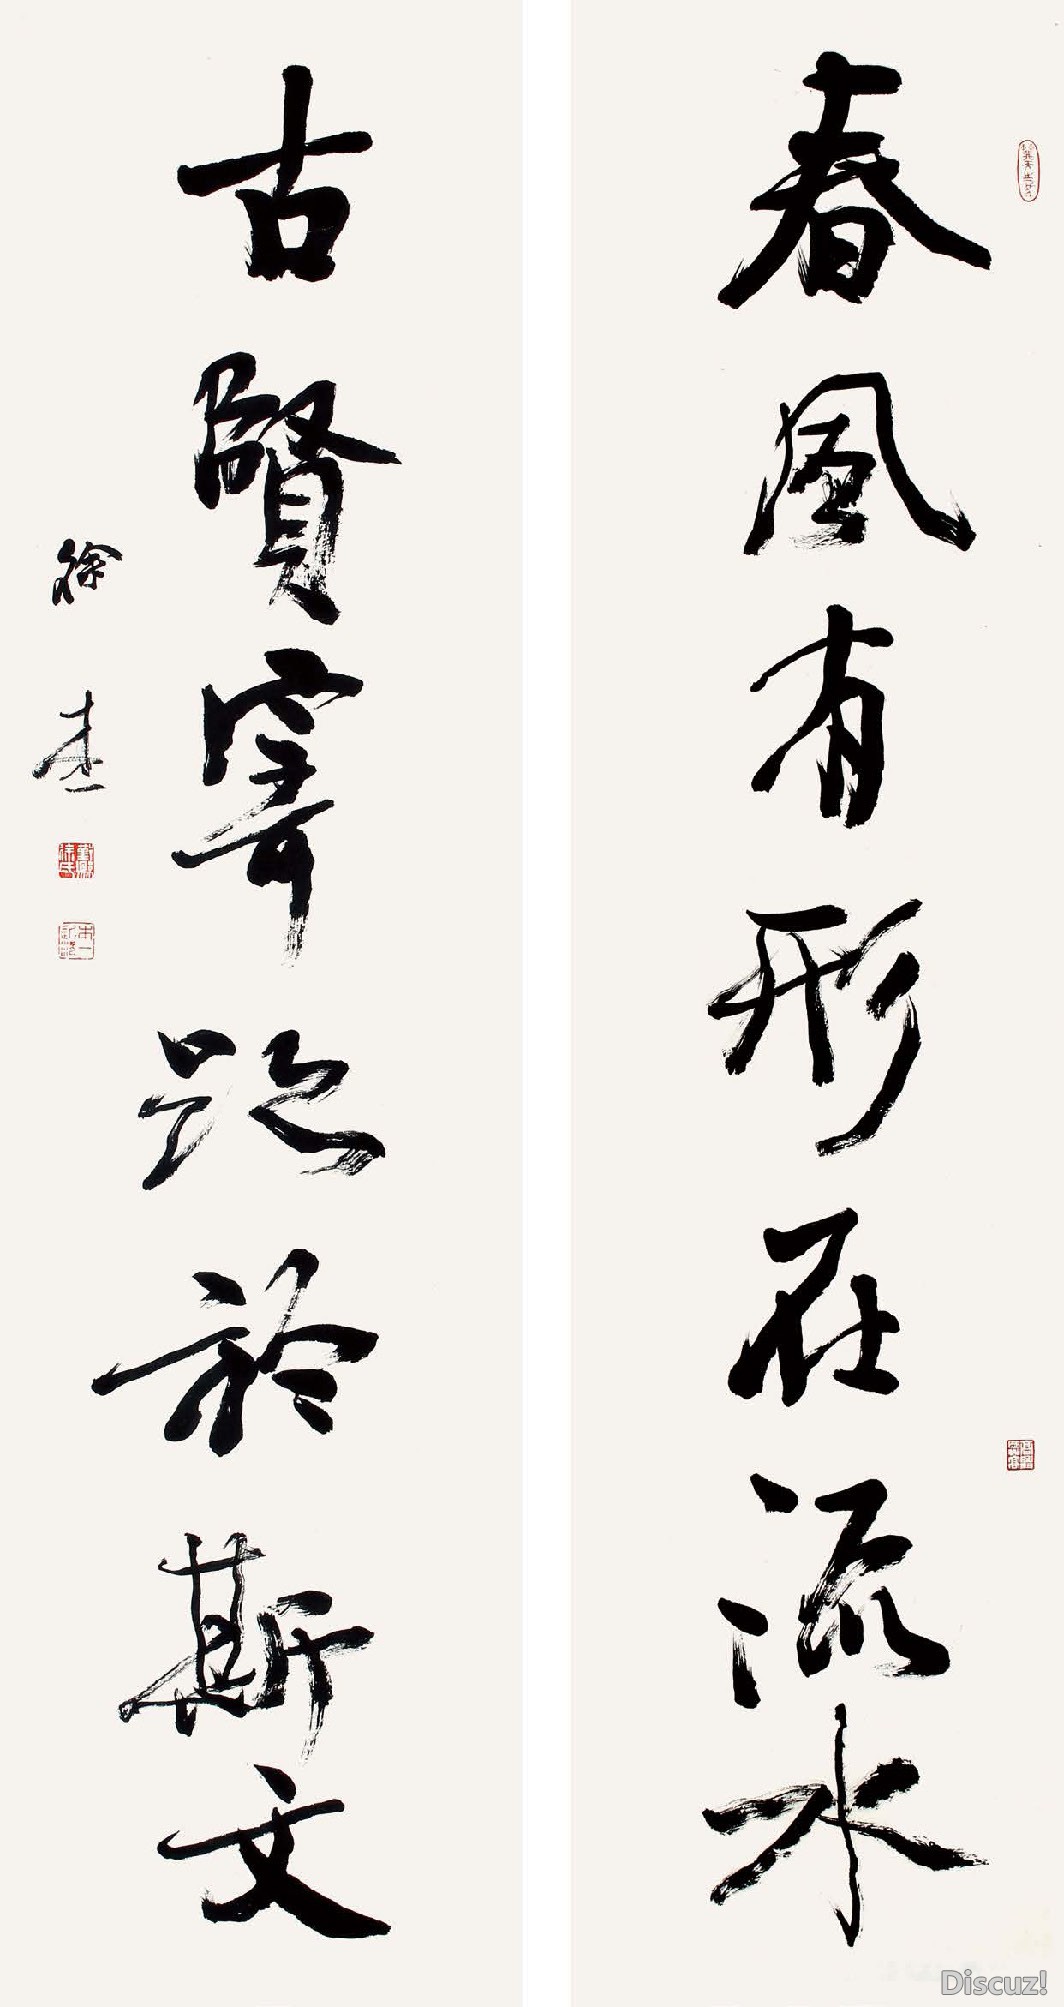 春風有形在流水
古賢寄跡於斯文
徐杰
Discuz!